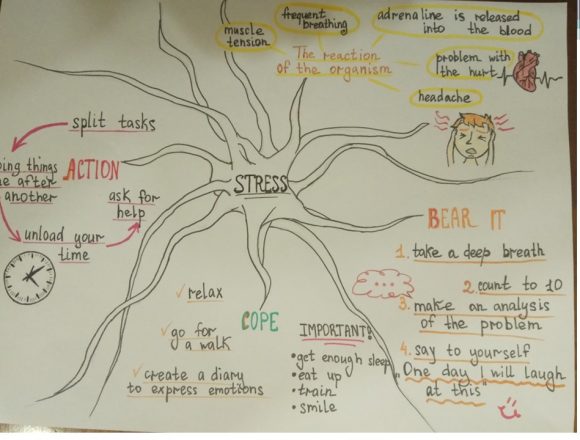 muscle
tension
frequent
breathing
adrenaline is released
into the blood
The reaction
of the organism
problem with
the hurt
headache
STRESS
split tasks
ACTION
things
after
another
ask for
help
unload your
time
BEAR IT
1. take a deep breath
2. count to 10
3. make an analysis
of the problem
4. say to yourself
"One day I will laugh
at this"
COPE
✓ relax
✓ go for
a walk
✓ create a diary
to express emotions
IMPORTANT!
• get enough sleep
• eat up
• train
• smile